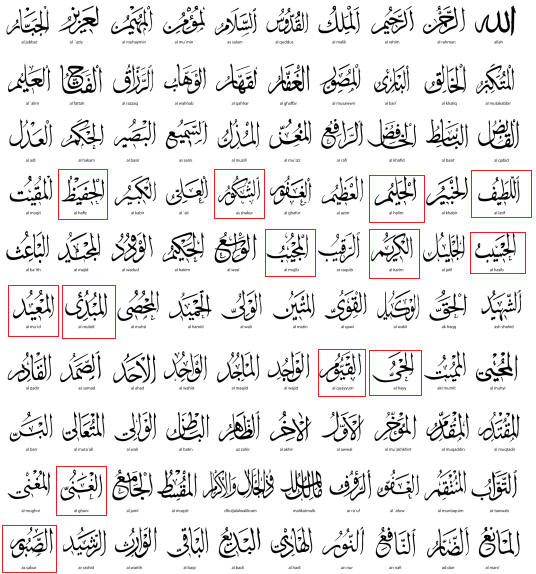 الله الرحمن الرحيم الملك القدوس السلام المؤمن المهيمن العزيز الجبار
al jabbar al 'aziz al muhaymin al mu'min as salam al quddus al malik al rahim al rahman allah
المتكبر الخالق البارئ المصور الغفار القهار الوهاب الرزاق الفتاح العليم
al 'alim al fattah al razzaq al wahhab al qahhar al ghaffar al musawwir al bari' al khaliq al mutakabbir
القابض الباسط الخافض الرافع المعز المذل السميع البصير الحكم العدل
al adl al hakam al basir as sami al muzill al mu'izz al rafi al khafid al basit al qabid
اللطيف الخبير الحليم العظيم الغفور الشكور العلي الكبير الحفيظ المقيت
al muqit al hafiz al kabir al 'ali as shakur al ghafur al azim al halim al khabir al latif
الحسيب الجليل الكريم الرقيب المجيب الواسع الحكيم الودود المجيد الباعث
al ba'ith al majid al wadud al hakim al wasi al mujib ar raqib al karim al jalil al hasib
الشهيد الحق الوكيل القوي المتين الولي الحميد المحصي المبدئ المعيد
al mu'id al mubdi al muhsi al hamid al wali al matin al qawi al wakil al haqq ash shahid
المحيي المميت الحي القيوم الواجد الماجد الواحد الاحد الصمد القادر
al qadir as samad al ahad al wahid al majid al wajid al qayyum al hayy al mumit al muhyi
المقتدر المقدم المؤخر الأول الآخر الظاهر الباطن الوالي المتعالي البر
al barr al muta'ali al wali al batin az zahir al akhir al awwal al mu'akhkhir al muqaddim al muqtadir
التواب المنتقم العفو الرؤوف مالك الملك ذو الجلال والإكرام المقسط الجامع الغني المغني
al mughni al ghani al jami al muqsit ar ra'uf al 'afuw al muntaqim at tawwab
المانع الضار النافع النور الهادي البديع الباقي الوارث الرشيد الصبور
as sabur ar rashid al warith al baqi al badi al hadi an nur an nafi ad darr al mani'